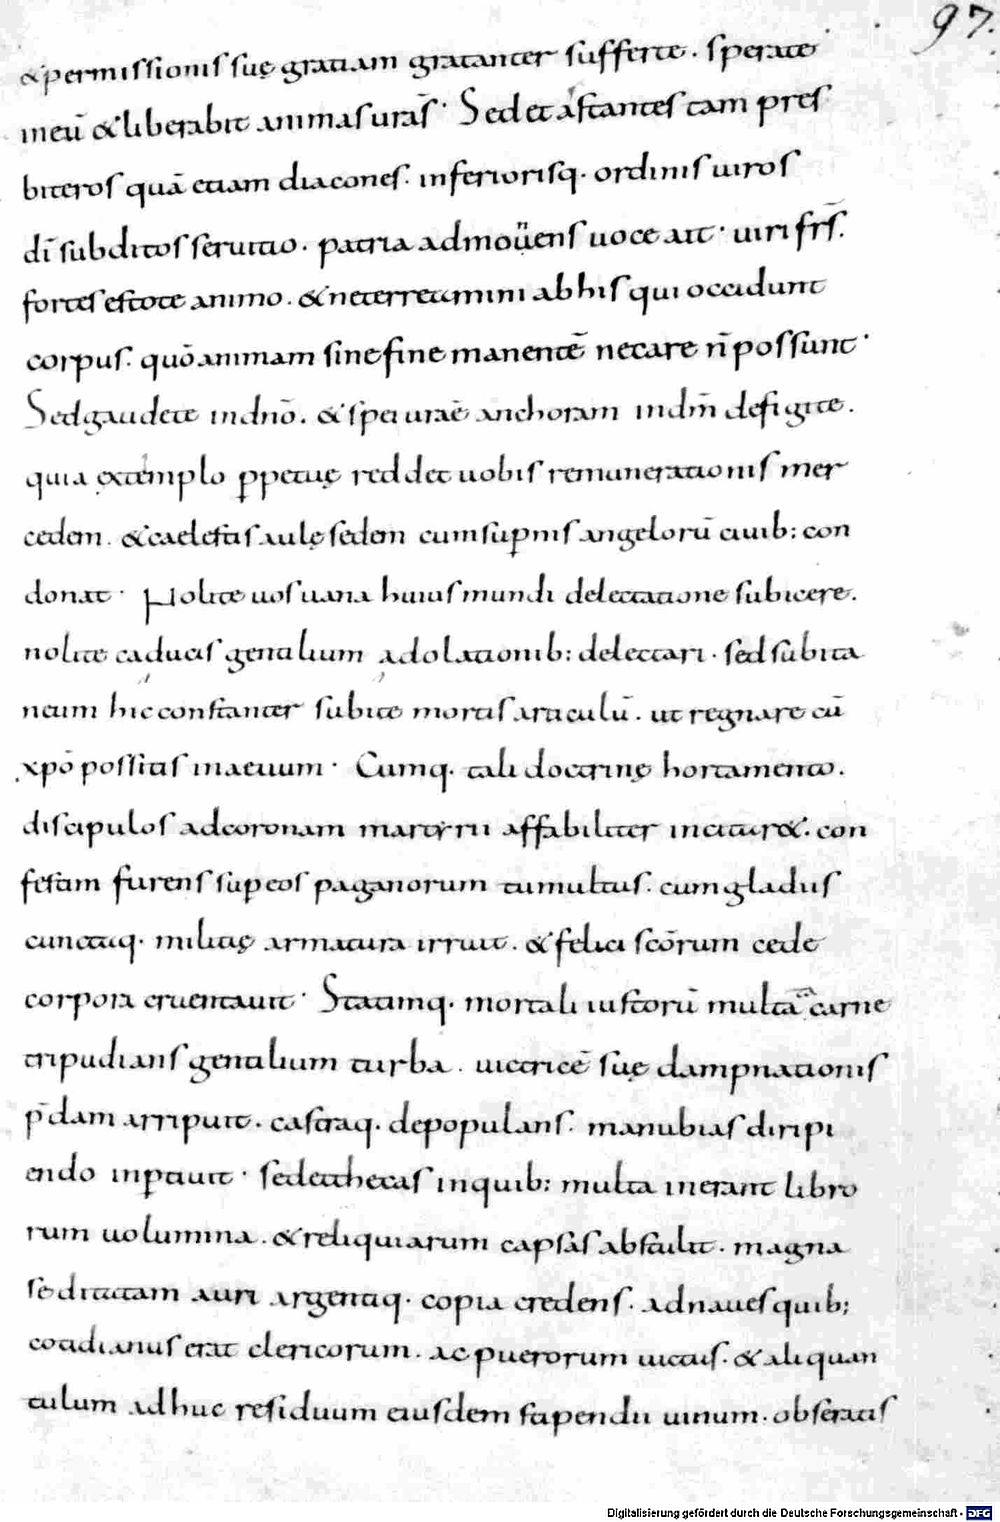 97.
&permissionis suę gratiam gratanter sufferte. sperate
in eū &liberabit animas urās. Sed et astantes tam pres
biteros quā etiam diacones. inferiorisq. ordinis uiros
dī subditos seruitio. patria admoūens uoce ait. uiri frs̄.
fortes estote animo. &ne terreamini ab his qui occidunt
corpus. quō animam sine fine manentē necare n̄ possunt.
Sed gaudete in dn̄o. &spei uraē anchoram in dm̄ defigite.
quia extemplo ꝑpetuę reddet uobis remunerationis mer
cedem. &caelestis aulę sedem cum suꝑnis angelorū ciuib: con
donat. Nolite uos uana huius mundi delectatione subicere.
nolite caducis gentilium adolationib: delectari. sed subita
neum hic constanter subite mortis articulū. ut regnare cū
xp̄o possitis in aeuum. Cumq. tali doctrinę hortamento.
discipulos ad coronam martyrii affabiliter incitar&. con
festim furens suꝑ eos paganorum tumultus. cum gladiis
cunctaq. militię armatura irruit. &felici scōrum cede
corpora cruentauit. Statimq. mortali iustorū multata carne
tripudians gentilium turba. uictricē suę dampnationis
p̄dam arripuit. castraq. depopulans. manubias diripi
endo inꝑtiuit. sed et thecas in quib: multa inerant libro
rum uolumina. &reliquiarum capsas abstulit. magna
se ditatam auri argentiq. copia credens. ad naues quib;
cotidianus erat clericorum. ac puerorum uictus. &aliquan
tulum adhuc residuum eiusdem stipendii uinum. obseratis
Digitalisierung gefördert durch die Deutsche Forschungsgemeinschaft - DFG